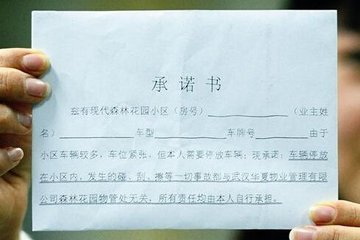 承诺书
兹有现代森林花园小区（房号）____________（业主姓
名）____________车型____________车牌号____________由于
小区车辆较多，车位紧张，但本人需要停放车辆；现承诺：车辆停放
在小区内，发生的碰、刮、擦等一切事故均与武汉华夏物业管理有限
公司森林花园物管处无关，所有责任均由本人自行承担。